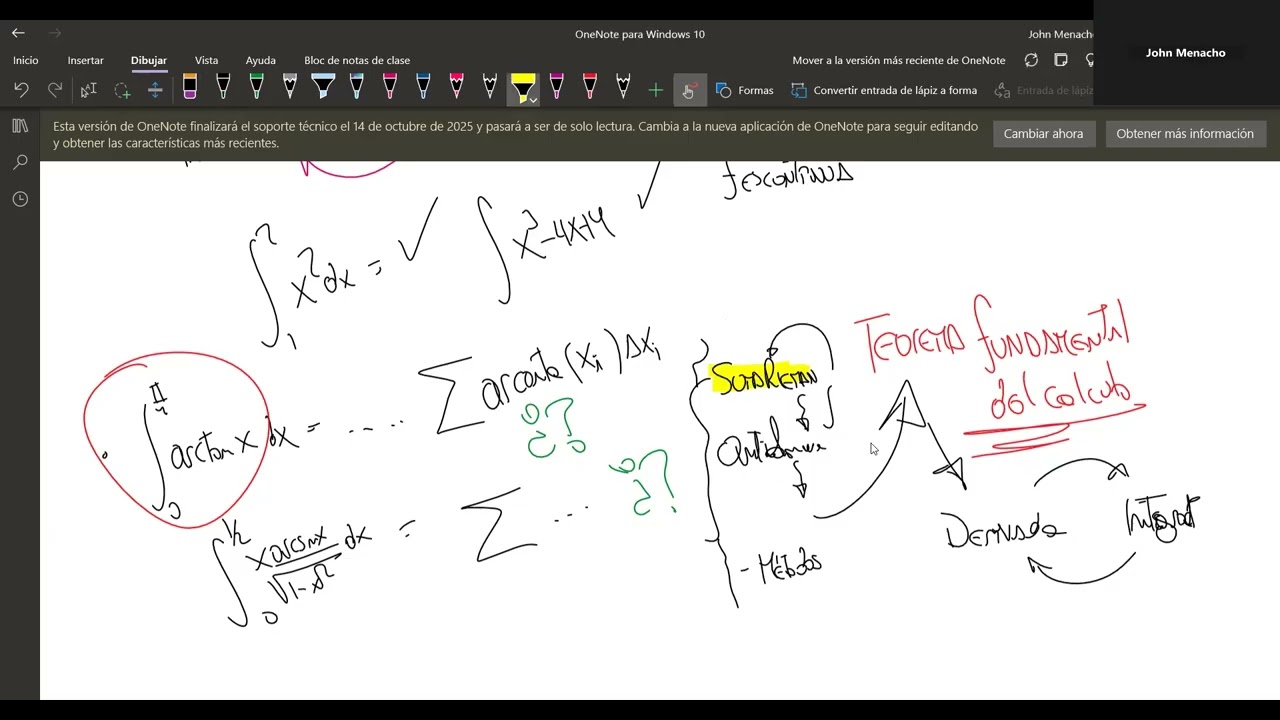 OneNote para Windows 10
John Menacho
John Menacho
Inicio Insertar Dibujar Vista Ayuda Bloc de notas de clase Mover a la versión más reciente de OneNote
Formas Convertir entrada de lápiz a forma Entrada de lápiz
Esta versión de OneNote finalizará el soporte técnico el 14 de octubre de 2025 y pasará a ser de solo lectura. Cambia a la nueva aplicación de OneNote para seguir editando
y obtener las características más recientes.
Cambiar ahora Obtener más información
f es continua
∫₁² x² dx = ✓ ∫ x² - 4x + 4 ✓
TEOREMA fUNDAMENTAL
del calculo
∫ arctan x dx = .... Σ (xᵢ) Δxᵢ
¿?
∫₀^(1/2) x arcsenx / √(1-x²) dx = Σ ... ¿?
Derivada Integral
- Métodos